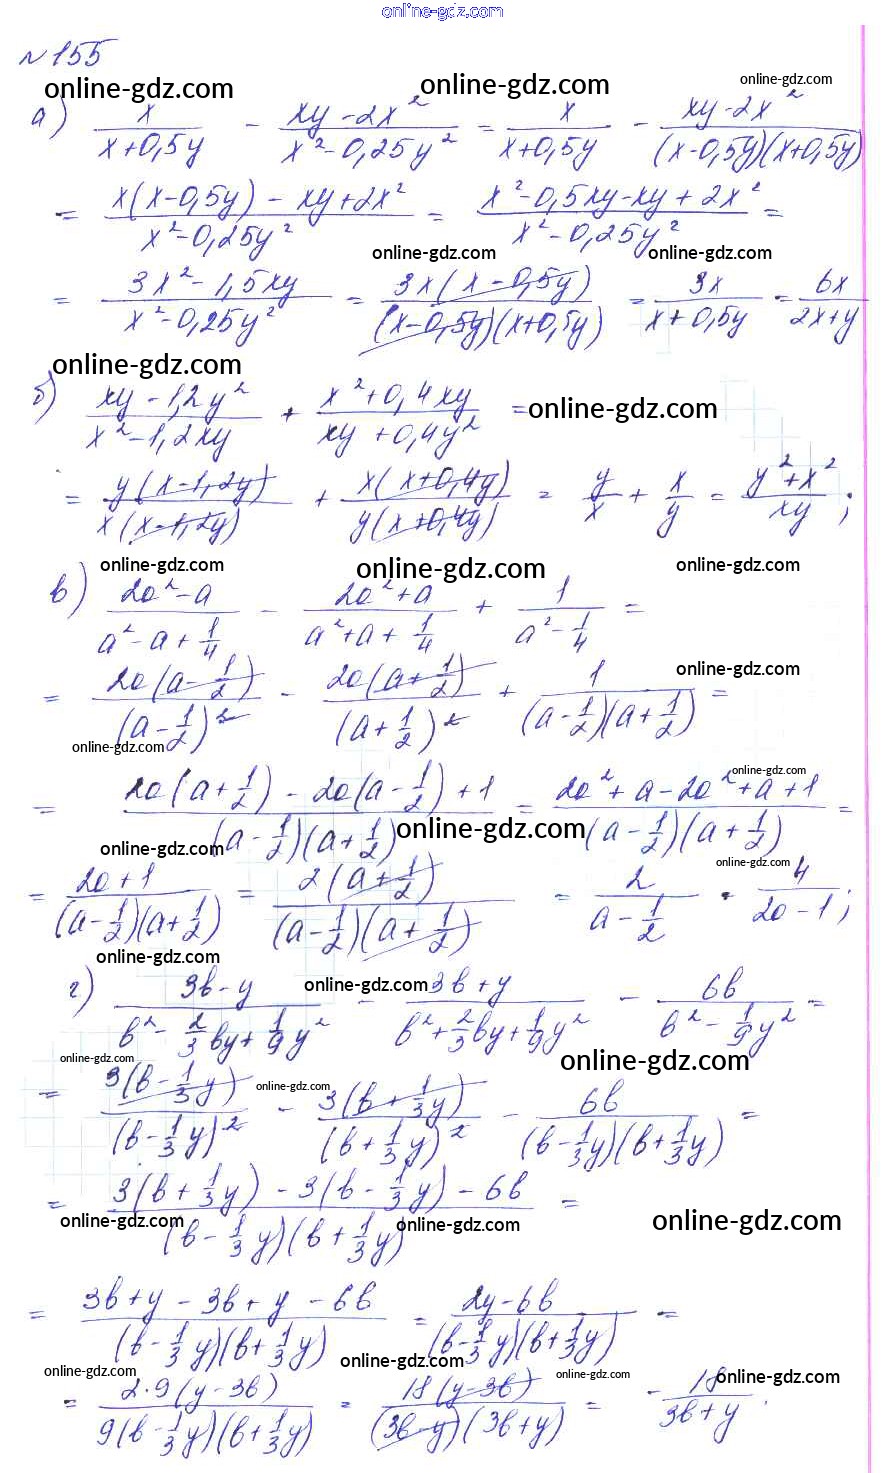 online-gdz.com
№155
online-gdz.com online-gdz.com online-gdz.com
а) x/(x+0,5y) - (xy-2x²)/(x²-0,25y²) = x/(x+0,5y) - (xy-2x²)/((x-0,5y)(x+0,5y))
= (x(x-0,5y) - xy+2x²)/(x²-0,25y²) = (x²-0,5xy-xy+2x²)/(x²-0,25y²) =
online-gdz.com online-gdz.com
= (3x²-1,5xy)/(x²-0,25y²) = (3x(x-0,5y))/((x-0,5y)(x+0,5y)) = 3x/(x+0,5y) = 6x/(2x+y)
online-gdz.com
б) (xy-1,2y²)/(x²-1,2xy) + (x²+0,4xy)/(xy+0,4y²) = online-gdz.com
= (y(x-1,2y))/(x(x-1,2y)) + (x(x+0,4y))/(y(x+0,4y)) = y/x + x/y = (y²+x²)/xy;
online-gdz.com online-gdz.com online-gdz.com
в) (2a²-a)/(a²-a+1/4) - (2a²+a)/(a²+a+1/4) + 1/(a²-1/4) =
online-gdz.com
= (2a(a-1/2))/((a-1/2)²) - (2a(a+1/2))/((a+1/2)²) + 1/((a-1/2)(a+1/2)) =
online-gdz.com
online-gdz.com
= (2a(a+1/2) - 2a(a-1/2) + 1)/((a-1/2)(a+1/2)) = (2a²+a-2a²+a+1)/((a-1/2)(a+1/2)) =
online-gdz.com online-gdz.com
online-gdz.com
= (2a+1)/((a-1/2)(a+1/2)) = (2(a+1/2))/((a-1/2)(a+1/2)) = 2/(a-1/2) = 4/(2a-1);
online-gdz.com online-gdz.com
г) (3b-y)/(b²-2/3by+1/9y²) - (3b+y)/(b²+2/3by+1/9y²) - 6b/(b²-1/9y²) =
online-gdz.com online-gdz.com
online-gdz.com
= (3(b-1/3y))/((b-1/3y)²) - (3(b+1/3y))/((b+1/3y)²) - 6b/((b-1/3y)(b+1/3y)) =
= (3(b+1/3y) - 3(b-1/3y) - 6b)/((b-1/3y)(b+1/3y)) =
online-gdz.com online-gdz.com online-gdz.com
= (3b+y-3b+y-6b)/((b-1/3y)(b+1/3y)) = (2y-6b)/((b-1/3y)(b+1/3y)) =
online-gdz.com online-gdz.com online-gdz.com online-gdz.com
= (2·9(y-3b))/(9(b-1/3y)(b+1/3y)) = (18(y-3b))/((3b-y)(3b+y)) = -18/(3b+y).